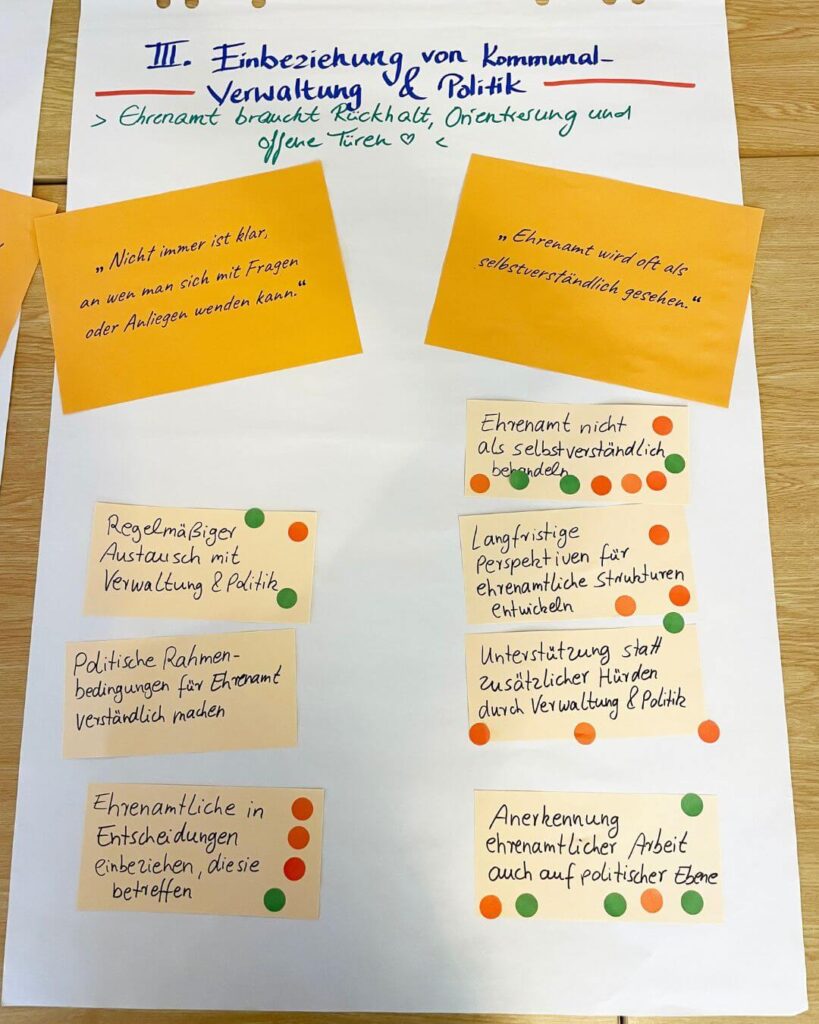 III. Einbeziehung von Kommunal-
Verwaltung & Politik
> Ehrenamt braucht Rückhalt, Orientierung und
offene Türen ♡ <
„Nicht immer ist klar,
an wen man sich mit Fragen
oder Anliegen wenden kann.“
„Ehrenamt wird oft als
selbstverständlich gesehen.“
Regelmäßiger
Austausch mit
Verwaltung & Politik
Politische Rahmen-
bedingungen für Ehrenamt
verständlich machen
Ehrenamtliche in
Entscheidungen
einbeziehen, die sie
betreffen
Ehrenamt nicht
als selbstverständlich
behandeln
Langfristige
Perspektiven für
ehrenamtliche Strukturen
entwickeln
Unterstützung statt
zusätzlicher Hürden
durch Verwaltung & Politik
Anerkennung
ehrenamtlicher Arbeit
auch auf politischer Ebene